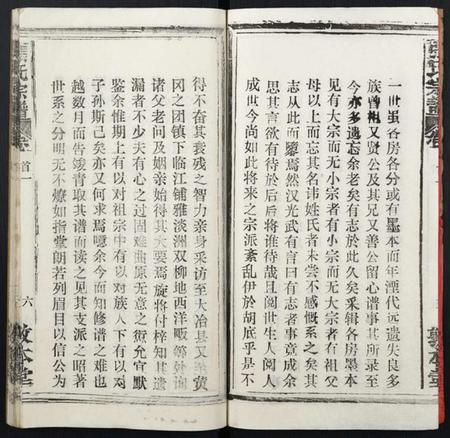 一世虽各房各分或有墨本而年湮代远遗失良多
族曾祖又贤公及其兄又善公留心谱事其所录至
今亦多遗忘余老矣有志於此久矣采辑各房墨本
见有大宗而无小宗者有小宗而无大宗者有祖父
母以上而忘其名讳姓氏者未尝不感慨系之矣其
志从此而隳焉然汉光武有言曰有志者事竟成余
思其言欲有待於后后将谁待哉且阅世生人阅人
成世今尚如此将来之宗派紊乱伊於胡底乎是不
敦本堂
宗谱
卷首一
六
敦本堂
得不奋其衰残之智力亲身采访至大冶县又至黄
冈之团镇下临江铺雅淡洲双柳地西洋畈等处询
诸父老问及姻亲始得其大要焉旋将付梓知其遗
漏者不少夫有心之过固难曲原无意之衍允宜默
鉴余惟期上有以对祖宗中有以对族人下有以对
子孙斯已矣亦又何求焉噫余今而知修谱之难也
越数月而告竣青取其谱而读之见其支派之昭著
世系之分明无不燎如指掌朗若列眉目以信公为